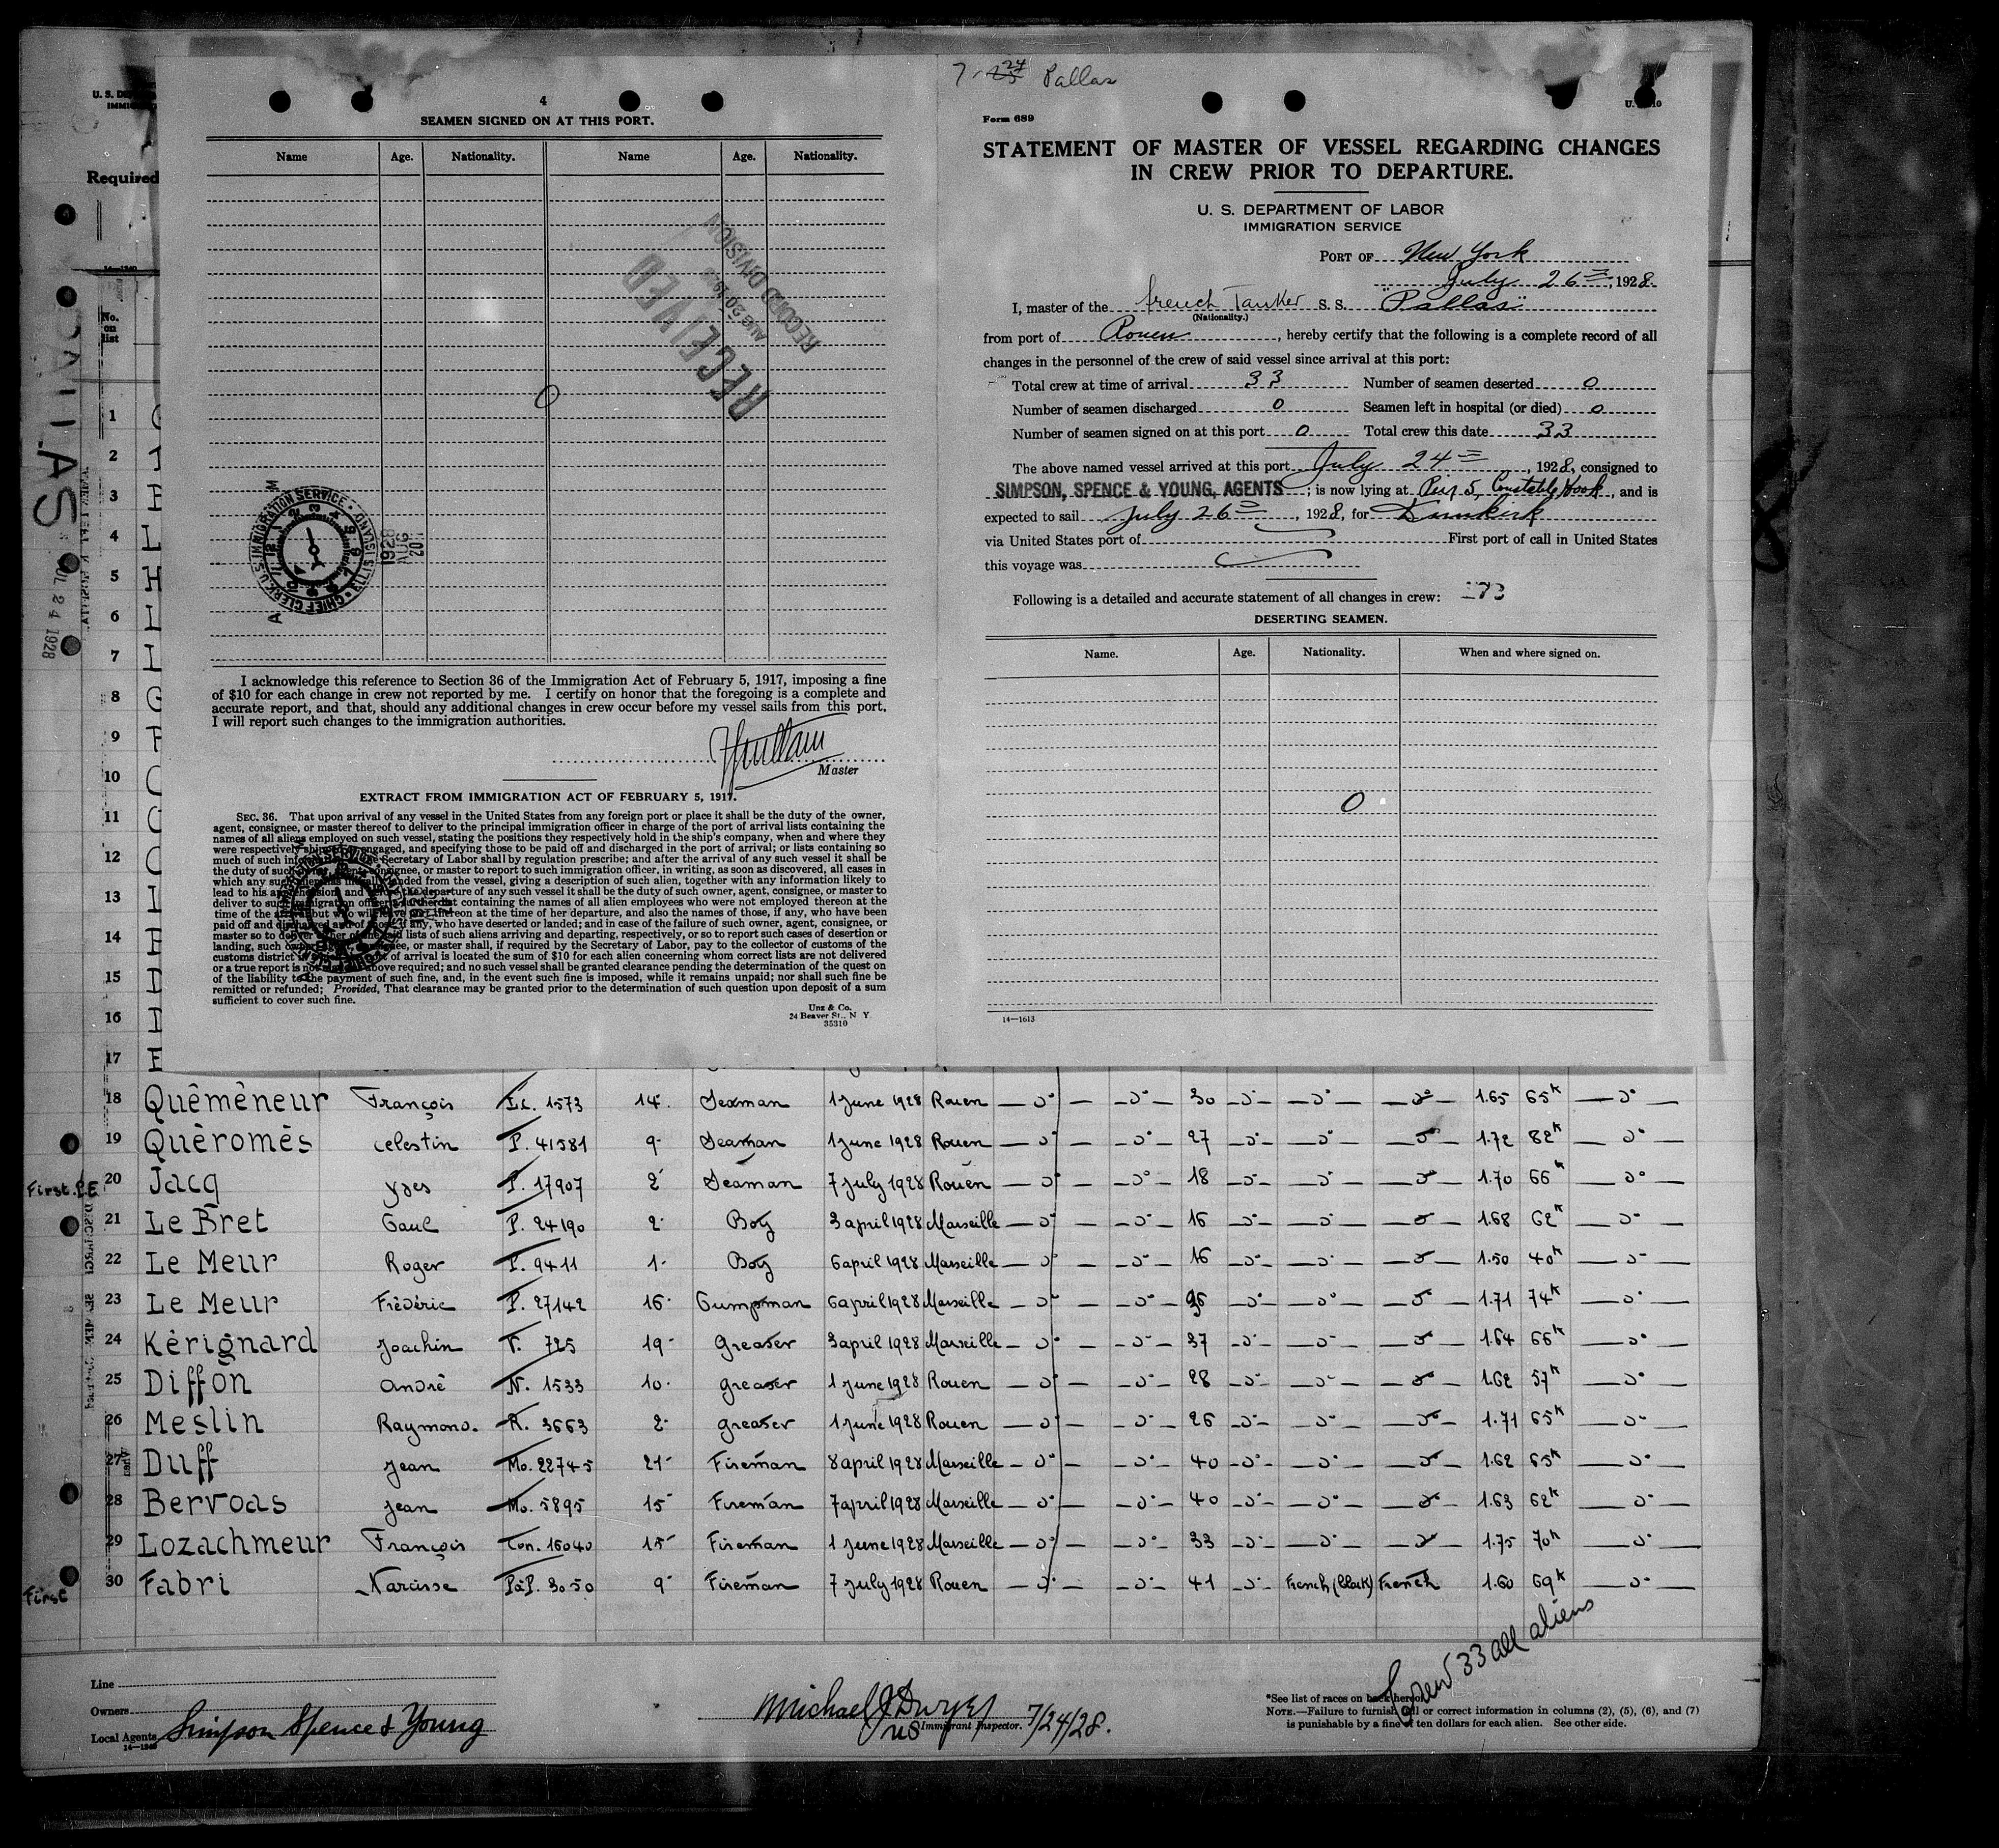 4
SEAMEN SIGNED ON AT THIS PORT.
Name Age. Nationality. Name Age. Nationality.
RECEIVED
AUG 20 19
RECORD DIVISION
0
U.S. IMMIGRATION SERVICE • ELLIS ISLAND • CHIEF CLERK
I acknowledge this reference to Section 36 of the Immigration Act of February 5, 1917, imposing a fine
of $10 for each change in crew not reported by me. I certify on honor that the foregoing is a complete and
accurate report, and that, should any additional changes in crew occur before my vessel sails from this port,
I will report such changes to the immigration authorities.
Master
EXTRACT FROM IMMIGRATION ACT OF FEBRUARY 5, 1917.
SEC. 36. That upon arrival of any vessel in the United States from any foreign port or place it shall be the duty of the owner,
agent, consignee, or master thereof to deliver to the principal immigration officer in charge of the port of arrival lists containing the
names of all aliens employed on such vessel, stating the positions they respectively hold in the ship's company, when and where they
were respectively shipped or engaged, and specifying those to be paid off and discharged in the port of arrival; or lists containing so
much of such information as the Secretary of Labor shall by regulation prescribe; and after the arrival of any such vessel it shall be
the duty of such owner, agent, consignee, or master to report to such immigration officer, in writing, as soon as discovered, all cases in
which any such alien has illegally landed from the vessel, giving a description of such alien, together with any information likely to
lead to his apprehension; and before the departure of any such vessel it shall be the duty of such owner, agent, consignee, or master to
deliver to such immigration officer a further list containing the names of all alien employees who were not employed thereon at the
time of the arrival but who will leave port thereon at the time of her departure, and also the names of those, if any, who have been
paid off and discharged and of those, if any, who have deserted or landed; and in case of the failure of such owner, agent, consignee, or
master so to deliver either of the said lists of such aliens arriving and departing, respectively, or so to report such cases of desertion or
landing, such owner, agent, consignee, or master shall, if required by the Secretary of Labor, pay to the collector of customs of the
customs district in which the port of arrival is located the sum of $10 for each alien concerning whom correct lists are not delivered
or a true report is not made as above required; and no such vessel shall be granted clearance pending the determination of the quest on
of the liability to the payment of such fine, and, in the event such fine is imposed, while it remains unpaid; nor shall such fine be
remitted or refunded; Provided, That clearance may be granted prior to the determination of such question upon deposit of a sum
sufficient to cover such fine.
Unz & Co.
24 Beaver St., N Y
35310
Pallas
Form 689
STATEMENT OF MASTER OF VESSEL REGARDING CHANGES
IN CREW PRIOR TO DEPARTURE.
U. S. DEPARTMENT OF LABOR
IMMIGRATION SERVICE
PORT OF New York
July 26, 1928
I, master of the french Tanker S. S. "Pallas"
(Nationality.)
from port of Rouen, hereby certify that the following is a complete record of all
changes in the personnel of the crew of said vessel since arrival at this port:
Total crew at time of arrival 33 Number of seamen deserted 0
Number of seamen discharged 0 Seamen left in hospital (or died) 0
Number of seamen signed on at this port 0 Total crew this date 33
The above named vessel arrived at this port July 24, 1928, consigned to
SIMPSON, SPENCE & YOUNG, AGENTS; is now lying at Pier 5, Constable Hook, and is
expected to sail July 26, 1928, for Dunkerk
via United States port of First port of call in United States
this voyage was
Following is a detailed and accurate statement of all changes in crew:
DESERTING SEAMEN.
Name. Age. Nationality. When and where signed on.
0
14—1613
Required
No. on list
PALLAS
JUL 24 1928
1
2
3
4
5
6
7
8
9
10
11
12
13
14
15
16
17
18 Quêmêneur François Lc. 1573 14 Seaman 1 June 1928 Rouen — do — — do — 30 — do — — do — — do — 1.65 65k — do —
19 Quèromès celestin P. 41581 9 Seaman 1 June 1928 Rouen — do — — do — 27 — do — — do — — do — 1.72 82k — do —
First P.E 20 Jacq yves P. 17907 2 Seaman 7 July 1928 Rouen — do — — do — 18 — do — — do — — do — 1.70 66k — do —
21 Le Bret Paul P. 24190 2 Boy 3 april 1928 Marseille — do — — do — 16 — do — — do — — do — 1.68 62k — do —
22 Le Meur Roger P. 9411 1 Boy 6 april 1928 Marseille — do — — do — 16 — do — — do — — do — 1.50 40k — do —
23 Le Meur Frédéric P. 27142 16 Pumpman 6 april 1928 Marseille — do — — do — — do — — do — — do — 1.71 74k — do —
24 Kérignard Joachin 725 19 Greaser 3 april 1928 Marseille — do — — do — 37 — do — — do — — do — 1.64 66k — do —
25 Diffon André N. 1533 10 greaser 1 June 1928 Rouen — do — — do — 28 — do — — do — — do — 1.62 57k — do —
26 Meslin Raymond. R. 3663 2 greaser 1 June 1928 Rouen — do — — do — 26 — do — — do — — do — 1.71 65k — do —
27 Duff Jean Mo. 22745 21 Fireman 8 april 1928 Marseille — do — — do — 40 — do — — do — — do — 1.62 65k — do —
28 Bervoas Jean Mo. 5895 15 Fireman 7 april 1928 Marseille — do — — do — 40 — do — — do — — do — 1.63 62k — do —
29 Lozachmeur François Con. 16040 15 Fireman 1 June 1928 Marseille — do — — do — 33 — do — — do — — do — 1.75 70k — do —
First 30 Fabri Narcisse PàP. 3050 9 Fireman 7 July 1928 Rouen — do — — do — 41 — do — French (black) French 1.60 69k — do —
Crew 33 all aliens
Line
Owners
Local Agents Simpson Spence & Young
14—1240
Michael J Dwyer
US Immigrant Inspector. 7/24/28.
*See list of races on back hereof.
NOTE.—Failure to furnish full or correct information in columns (2), (5), (6), and (7)
is punishable by a fine of ten dollars for each alien. See other side.